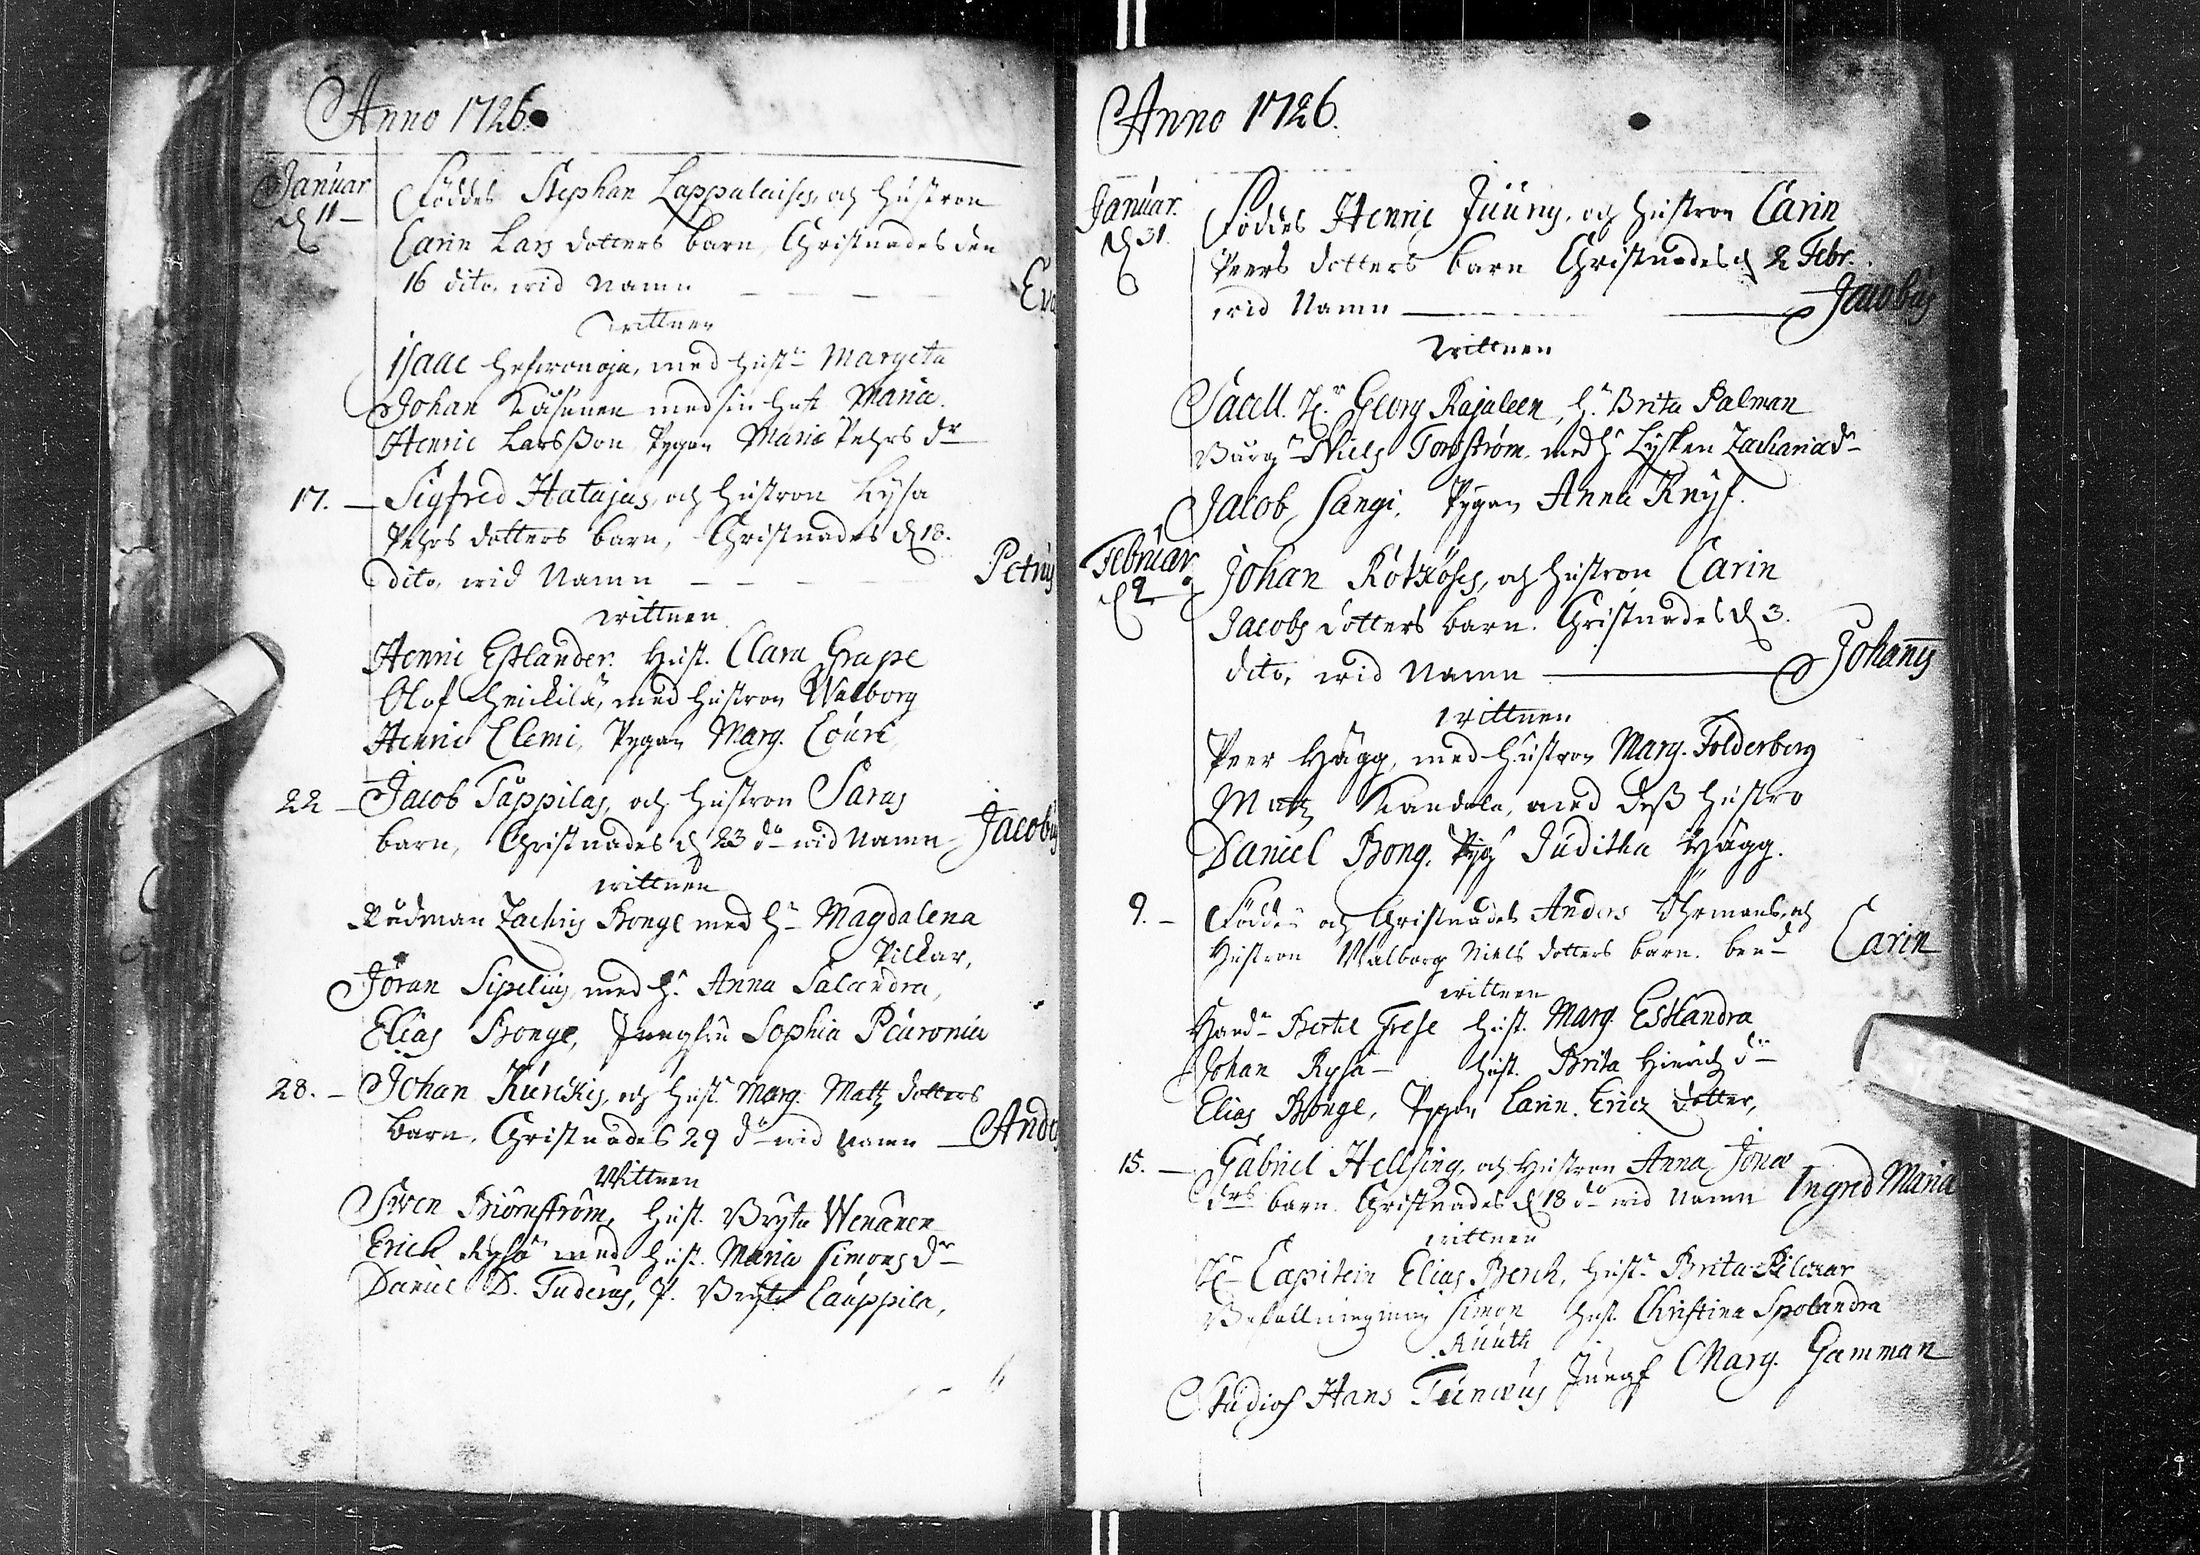 Anno 1726.
Januar
d 11 –
Föddes Stephan Lappalaises, och hustron
Carin Lars dotters barn, Christnades den
16 dito, wid Namn – – – – Eva
wittnen
Isaac, med hust: Margeta
Johan Kåsunen med sin hust Maria
Henric Larsßon, Pygan Maria Pehrs dr
17. – Sigfred Hatajas, och hustron Lysa
Pehrs dotters barn, Christnades d 18.
dito, wid Namn – – – Petrus
wittnen
Henric Estlander. Hust. Clara Grape
Olof Heickilä, med hustron Walborg
Henric Clemi, Pygan Marg.
22 – Jacob Täppilas, och hustron Saras
barn, Christnades d 23 do wid Namn – Jacobus
wittnen
Rådman Zachris Bonge med h– Magdalena
Pilkar,
Jöran Sipelius, med h. Anna Salandra,
Elias Bonge, Jungfru Sophia
28. – Johan Kurckis, och hust Marg. Matz dotters
barn, Christnades 29 do wid namn – Andr
Wittnen
Swen Biörnström, hust. Bryta Wenänen
Erich Rysä med hust. Maria Simons dr
Daniel D. Tuderus, P. Bryta Cauppila,
Anno 1726.
Januar.
d 31.
Föddes Henric Juuris, och hustron Carin
Peers dotters barn Christnades d 2 Febr.
wid Namn – Jacobus
Wittnen
Sacell. H.r Georg Rajaleen, h. Brita Salman
Burg– Niels Tornström, med h Lysken Zacharia dr
Jacob Sangi, Pygan Anna Knyf.
Februar
d 2
Johan Rötköses, och hustron Carin
Jacobs dotters barn. Christnades d 3.
dito, wid Namn – Johannes
wittnen
Peer Hägg, med hustron Marg. Folderberg
Matz Kandela, med deß hustro
Daniel Bong, Pyg Juditha Hägg.
9. – Född och Christnades Anders Öhrmans, och
Hustron Walborg Niels dotters barn. ben– Carin
wittnen
Hand– Bertil Frese hust. Marg. Estlandra
Johan Rysä – hust. Brita Hinrich dr
Elias Bonge, Pygan Carin Ericz dotter,
15. – Gabriel Hellsing, och Hustron Anna Jonæ
drs barn. Christnades d 18 do wid Namn Ingred Maria
wittnen
H– Capitein Elias Berch, hust– Brita Pilckar
Befallningsman Simon hust Christina Spolandra
Ruuth
Studios Hans Jungf Marg. Gamman